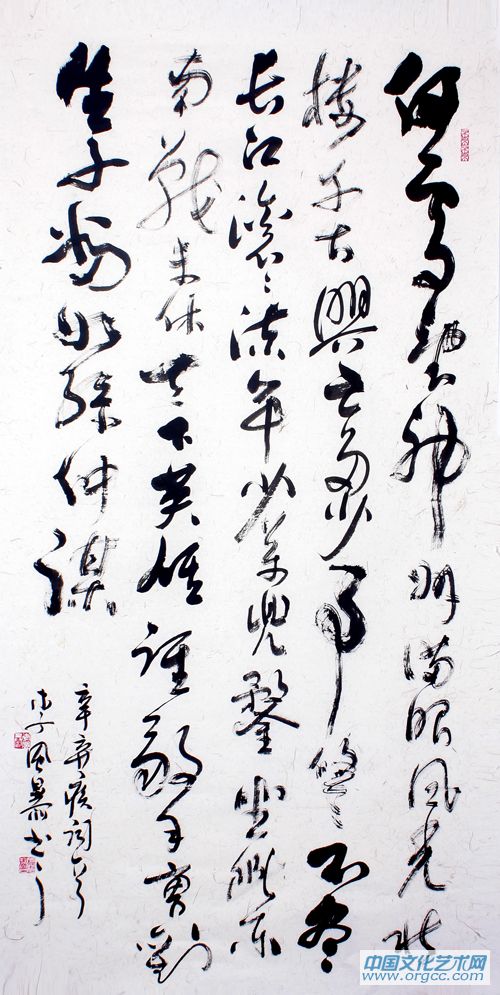 何处望神州满眼风光北
楼千古興亡多少事悠々不尽
长江滚々流年少万兜鍪坐断东
南战未休天下英雄谁敌手曹劉
生子当如孫仲谋
辛弃疾词
木子風暴书
中国文化艺术网
www.orgcc.com